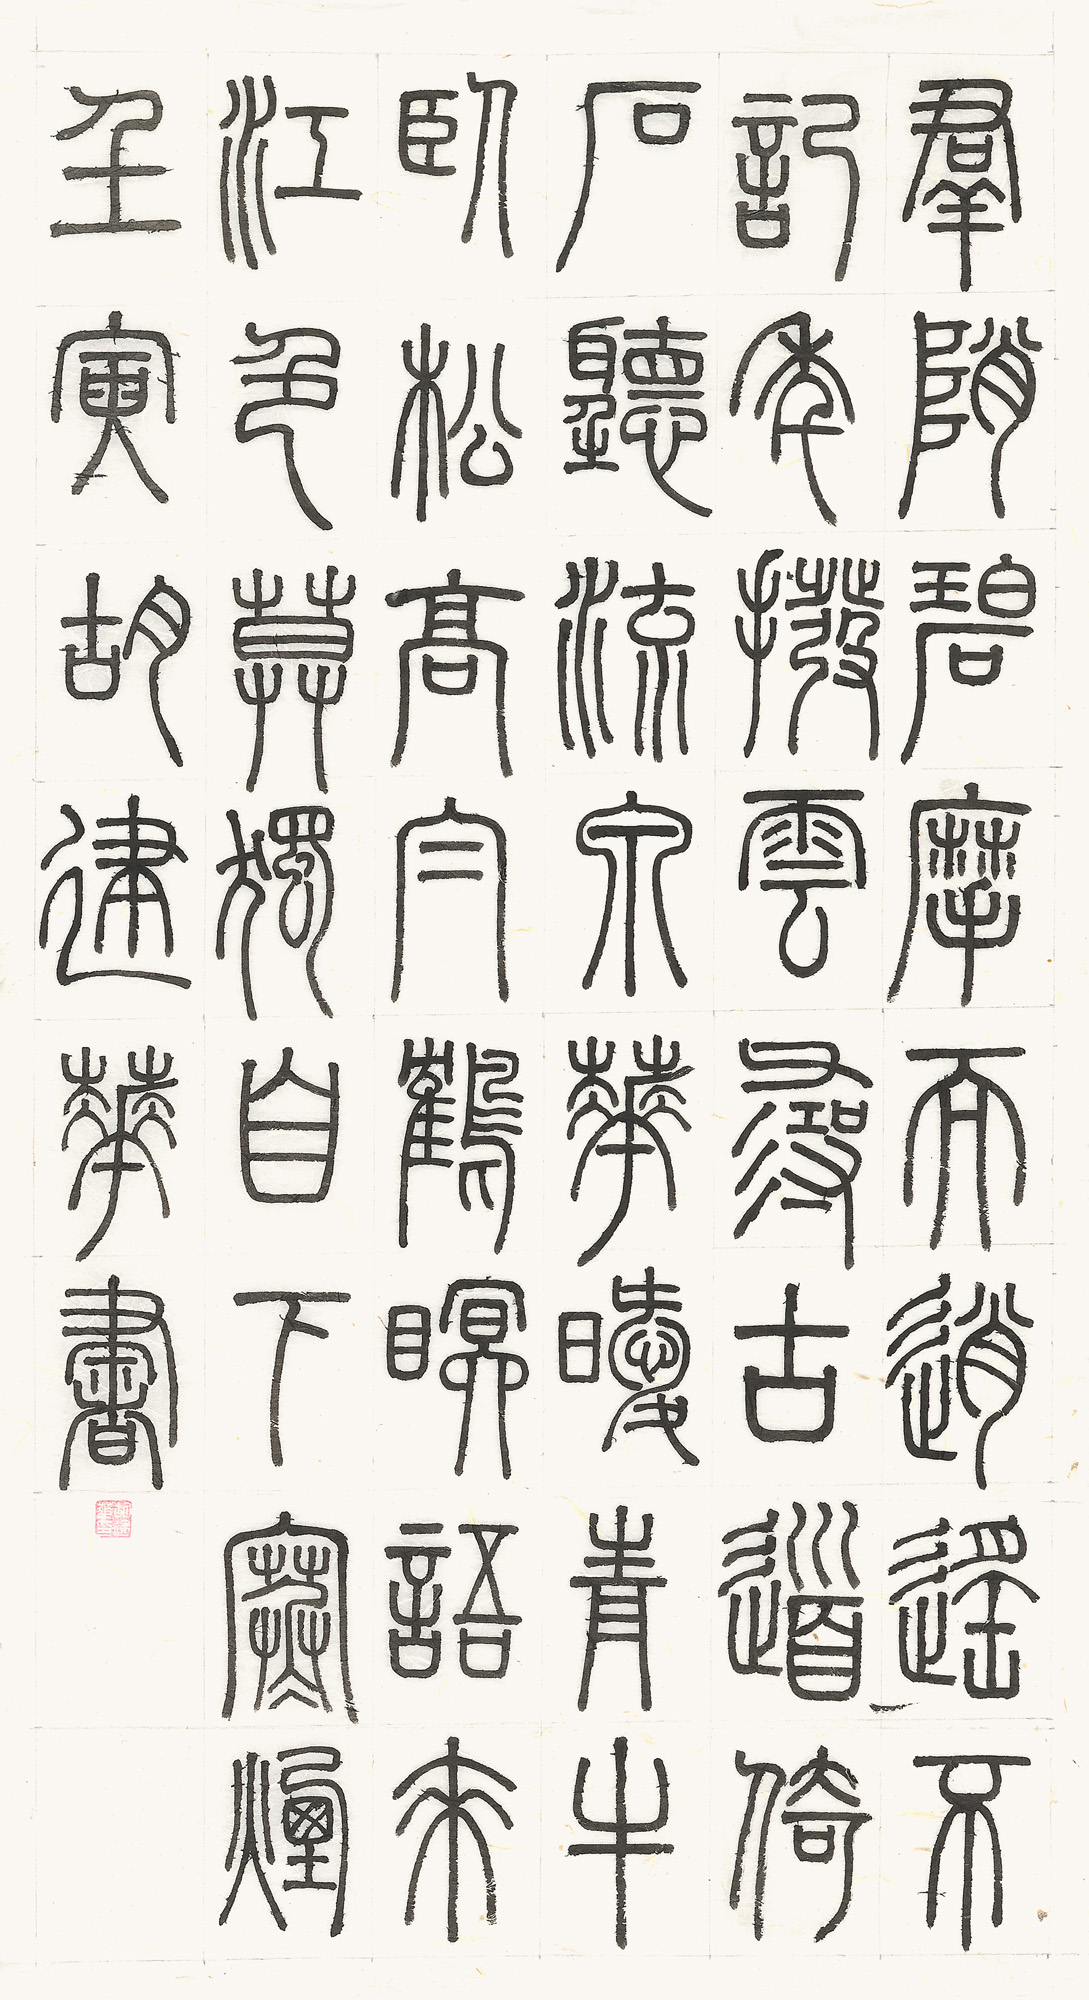 羣陗碧摩天逍遙不
記年撥雲尋古道倚
石聽流泉華曖青牛
臥松高白鶴瞑語來
江色莫獨自下寒煙
壬寅胡建華書